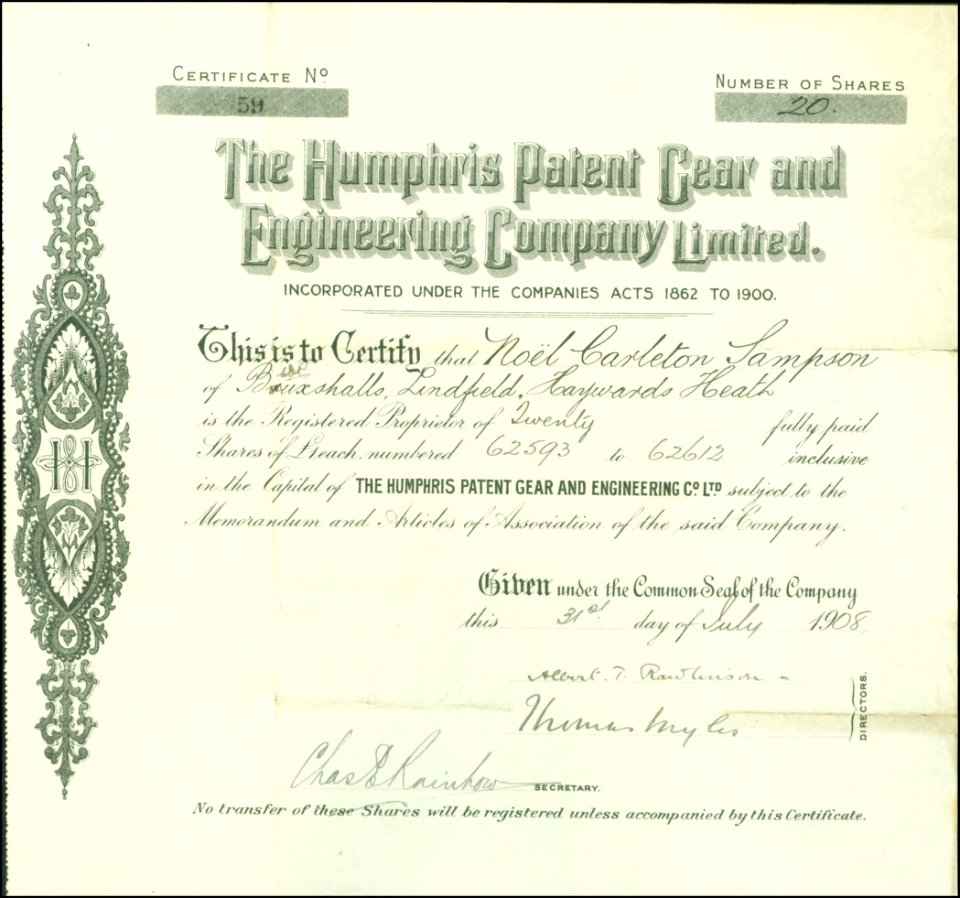 CERTIFICATE Nº
59
NUMBER OF SHARES
20.
The Humphris Patent Gear and
Engineering Company Limited.
INCORPORATED UNDER THE COMPANIES ACTS 1862 TO 1900.
This is to Certify that Noël Carleton Sampson
of Lindfield, Haywards Heath
is the Registered Proprietor of Twenty fully paid
Shares of £1 each. numbered 62593 to 62612 inclusive
in the Capital of THE HUMPHRIS PATENT GEAR AND ENGINEERING Cº LTD subject to the
Memorandum and Articles of Association of the said Company.
Given under the Common Seal of the Company
this 31st day of July 1908
Albert T. Rawlinson
Thomas Myles
DIRECTORS.
Chas E Rainbow SECRETARY.
No transfer of these Shares will be registered unless accompanied by this Certificate.
H